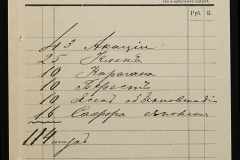 Руб. К.
43 Акаціи
25 Кленъ
10 Карагана
10 Берестъ
10 Ясень обыкновенный
16 Софора японская
114 штукъ